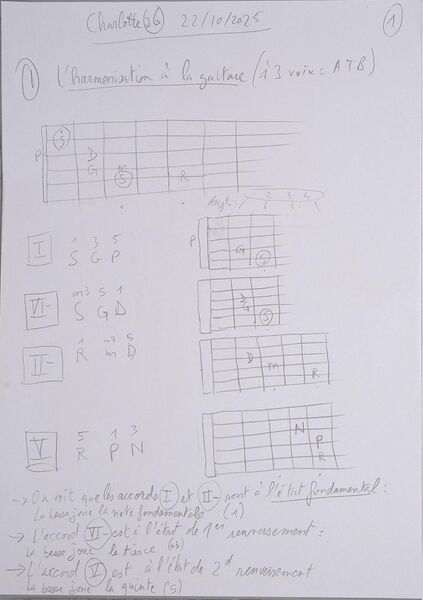 Charlotte 36 22/10/2025 1
1 L'harmonisation à la guitare (à 3 voix = A T B)
S
P D
G m
S R
doigts: 1 2 3 4
I 1 3 5
S G P
P G S
VI- m3 5 1
S G D
D G S
II- 1 m7 5
R m D
D m R
V 5 1 3
R P N
N P R
→ On voit que les accords I et II- sont à l'état fondamental :
La basse joue la note fondamentale (1)
→ L'accord VI- est à l'état de 1er renversement :
La basse joue la tierce (m3)
→ L'accord V est à l'état de 2d renversement
La basse joue la quinte (5)